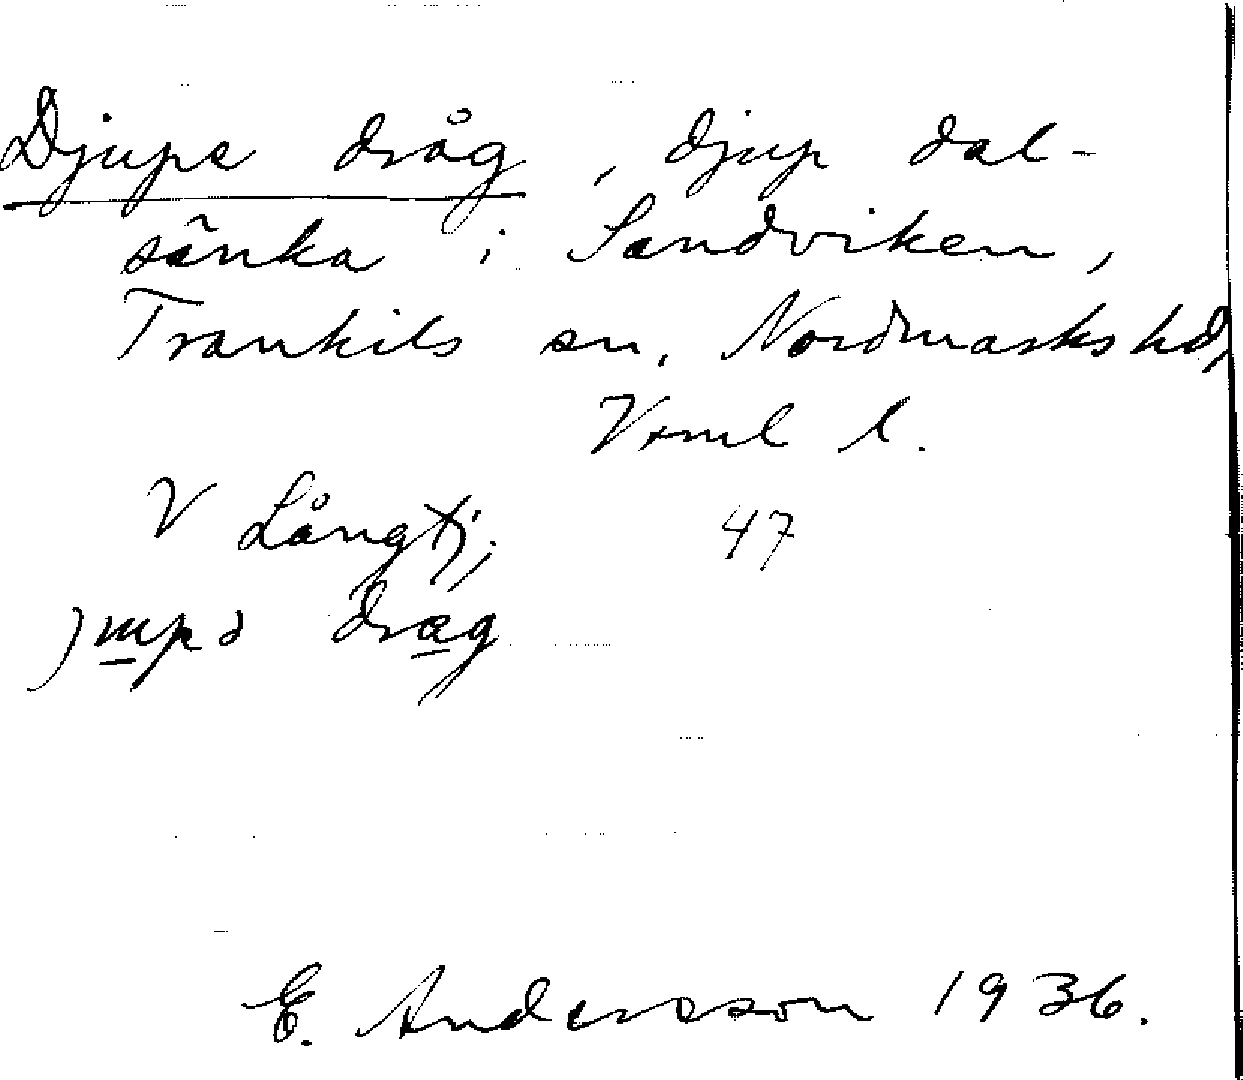 Djupe dråg, djup dal-
sänka i Sandviken,
Trankils sn, Nordmarks hd,
Vrml l.
V Långtj;
47
dræg
E. Andersson 1936.